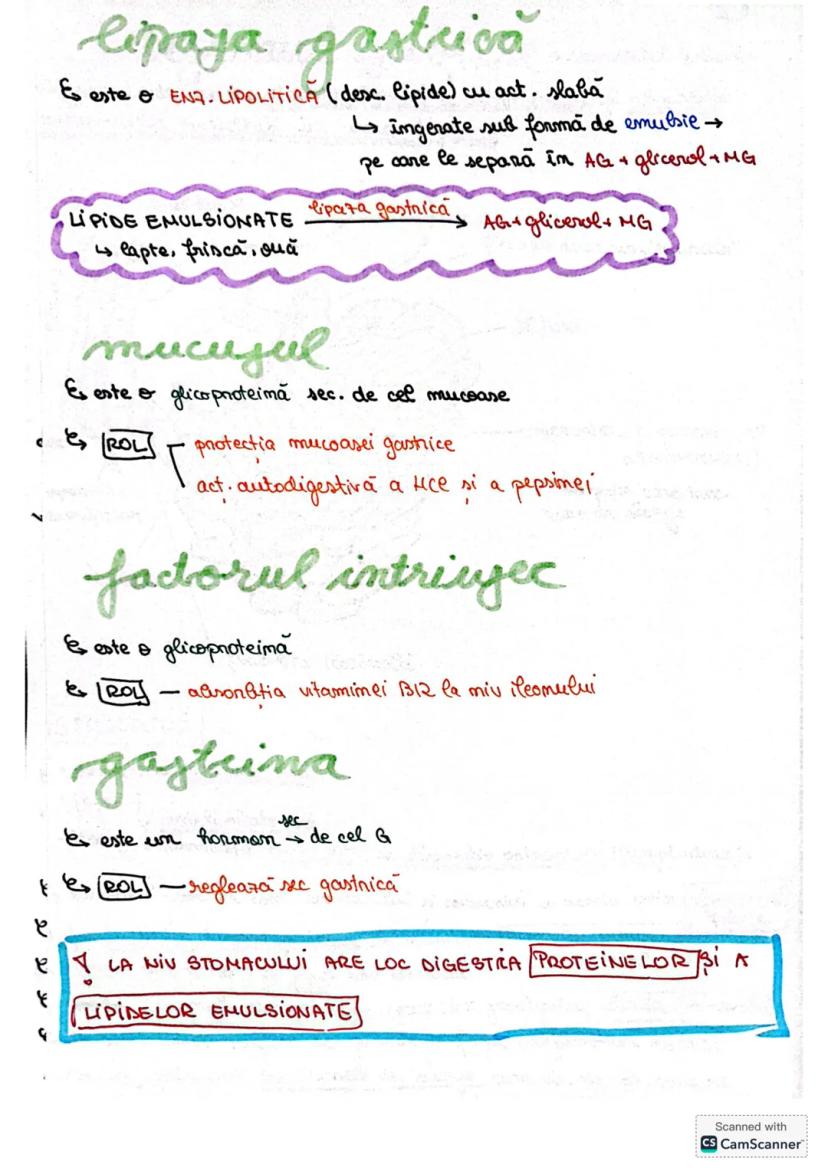 lipaza gastrică
→ este o ENZ. LIPOLITICĂ (desc. lipide) cu act. slabă
↳ ingerate sub formă de emulsie →
pe care le separă în AG + glicerol + MG
LIPIDE EMULSIONATE lipaza gastrică → AG + glicerol + MG
↳ lapte, frișcă, ouă
mucusul
→ este o glicoproteină sec. de cel mucoase
→ ROL protecția mucoasei gastrice
act. autodigestivă a HCl și a pepsinei
factorul intrinsec
→ este o glicoproteină
→ ROL — absorbția vitaminei B12 la niv ileomului
gastrina
→ este un hormon sec → de cel G
→ ROL — reglează sec gastrică
! LA NIV STOMACULUI ARE LOC DIGESTIA PROTEINELOR ȘI A
LIPIDELOR EMULSIONATE
Scanned with
CS CamScanner